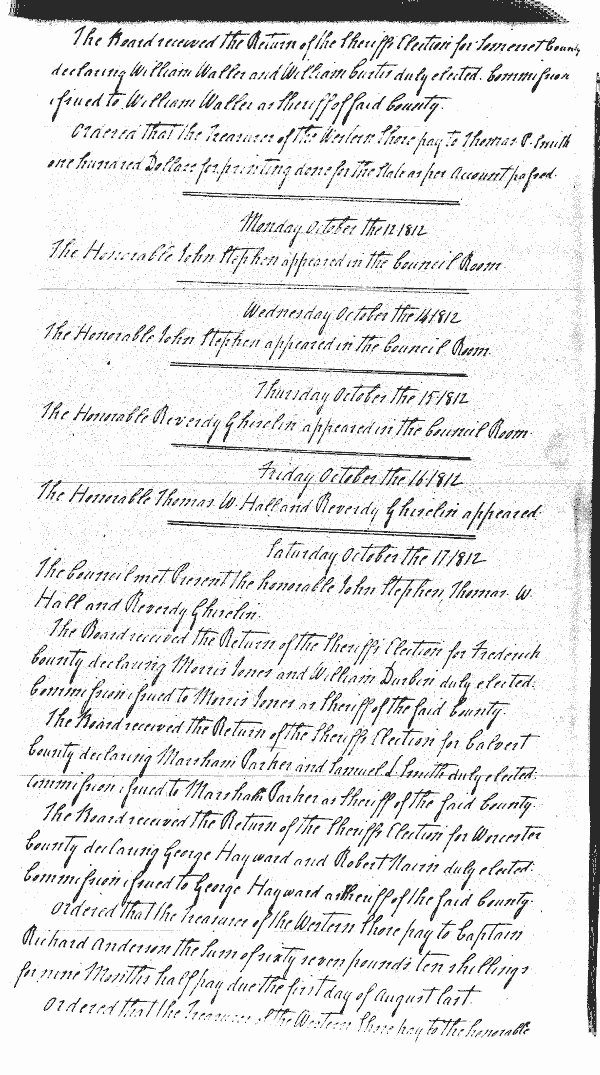 The Board received the Return of the Sheriffs Election for Somerset County
declaring William Waller and William Curtis duly elected. Commission
issued to William Waller as Sheriff of said County.
Ordered that the Treasurer of the Western Shore pay to Thomas P. Smith
one hundred Dollars for printing done for the State as per Account passed.
Monday October the 12 1812
The Honorable John Stephen appeared in the Council Room.
Wednesday October the 14 1812
The Honorable John Stephen appeared in the Council Room.
Thursday October the 15 1812
The Honorable Reverdy Ghiselin appeared in the Council Room.
Friday October the 16 1812
The Honorable Thomas W. Hall and Reverdy Ghiselin appeared.
Saturday October the 17 1812
The Council met Present the honorable John Stephen, Thomas W.
Hall and Reverdy Ghiselin.
The Board received the Return of the Sheriffs Election for Frederick
County declaring Morris Jones and William Durbin duly elected.
Commission issued to Morris Jones as Sheriff of the said County.
The Board received the Return of the Sheriffs Election for Calvert
County declaring Marsham Parker and Samuel L. Smith duly elected.
Commission issued to Marsham Parker as Sheriff of the said County.
The Board received the Return of the Sheriffs Election for Worcester
County declaring George Hayward and Robert Nairn duly elected.
Commission issued to George Hayward as Sheriff of the said County.
Ordered that the Treasurer of the Western Shore pay to Captain
Richard Anderson the sum of sixty seven pounds ten shillings
for nine Months half pay due the first day of August last.
Ordered that the Treasurer of the Western Shore pay to the honorable